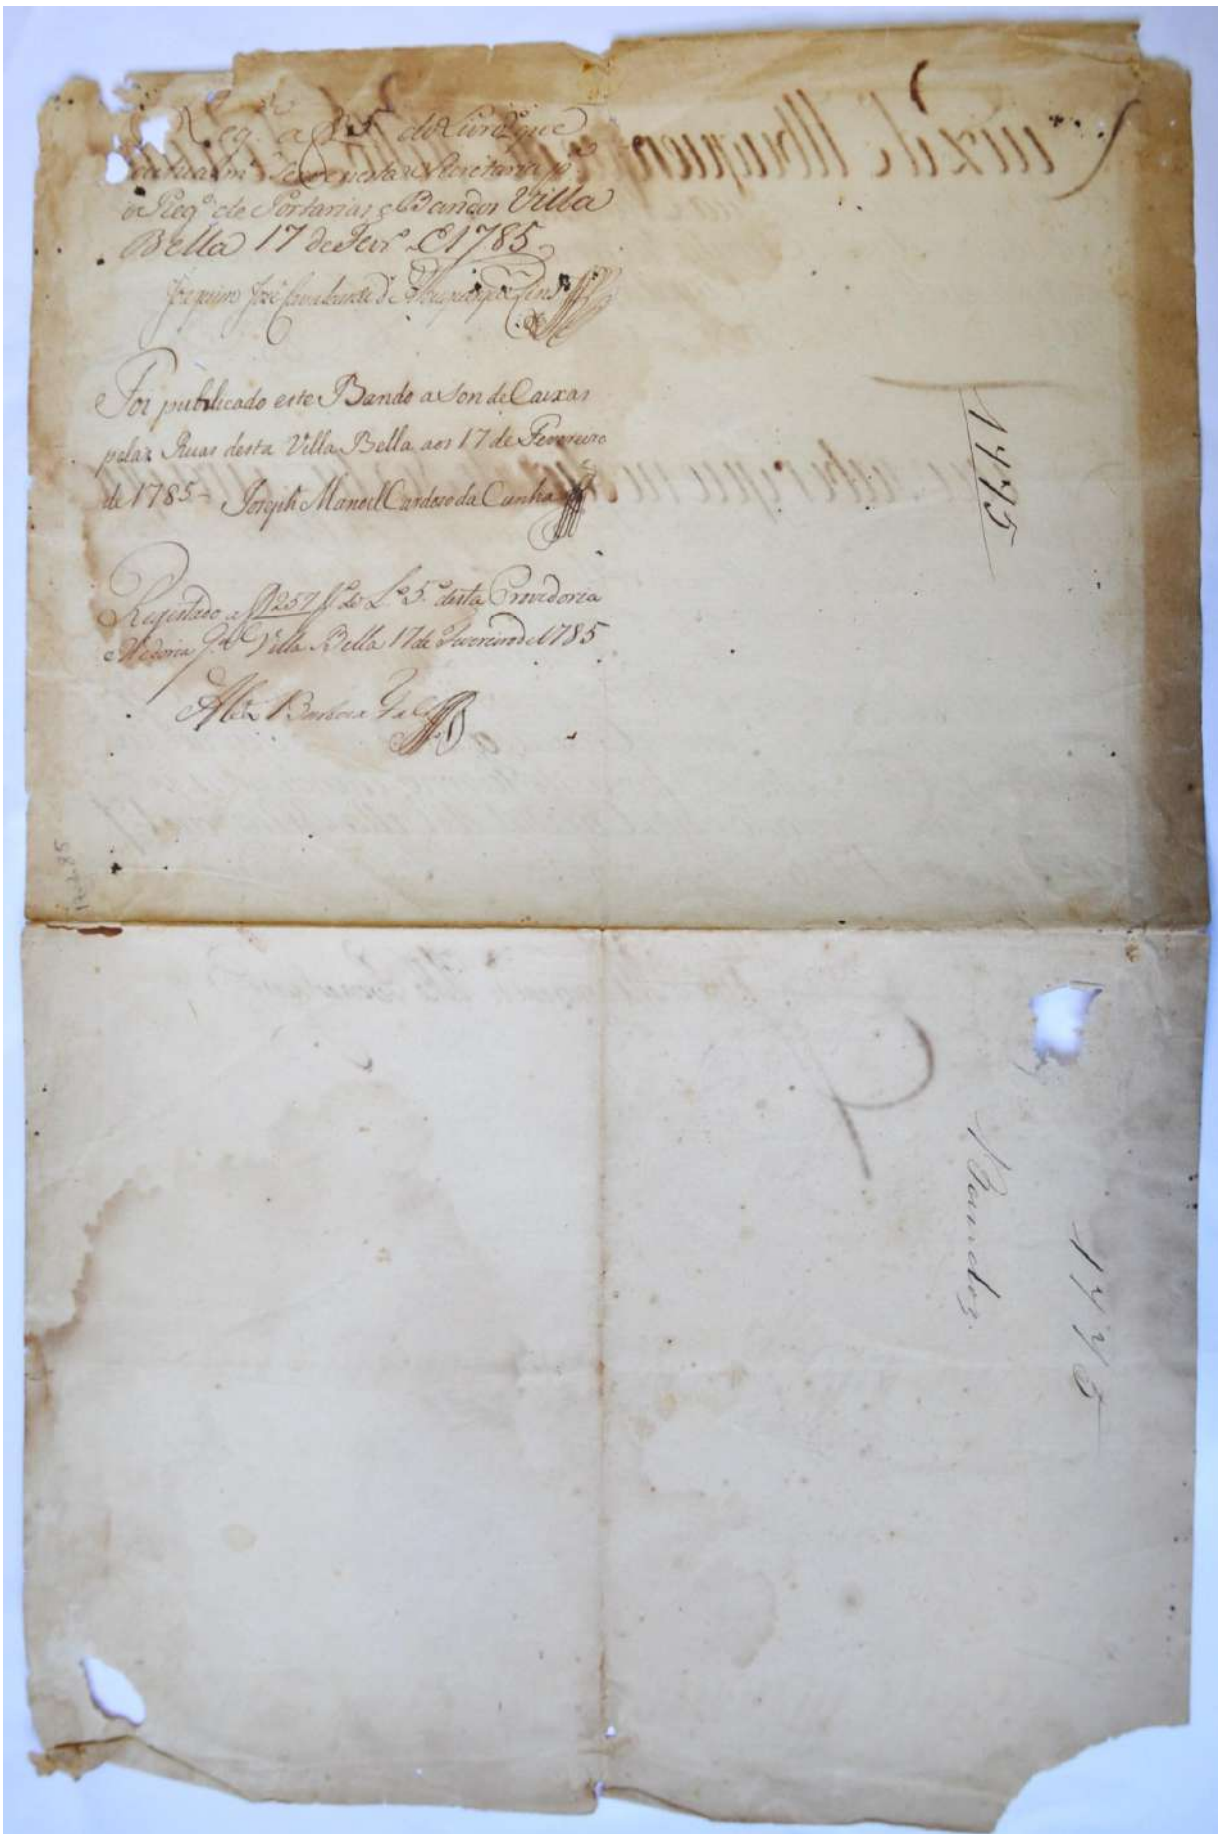 Reg.do a f 25 do Livro que
actualm.te serve nesta Secretaria p.a
o Reg.o de Portarias e Bandos Villa
Bella 17 de Fevr.o de 1785
Joaquim José Cavalcante d'Albuquerque Lins
Foi publicado este Bando a son de Caixas
pelas Ruas desta Villa Bella aos 17 de Fevereiro
de 1785 - Joseph Manoel Cardoso da Cunha
Registado a f 257 V.o do L.o 5.o desta Provedoria
e Vedoria G.al Villa Bella 17 de Fevereiro de 1785
Barbosa
1775
17-2-85
Bandos.
1775